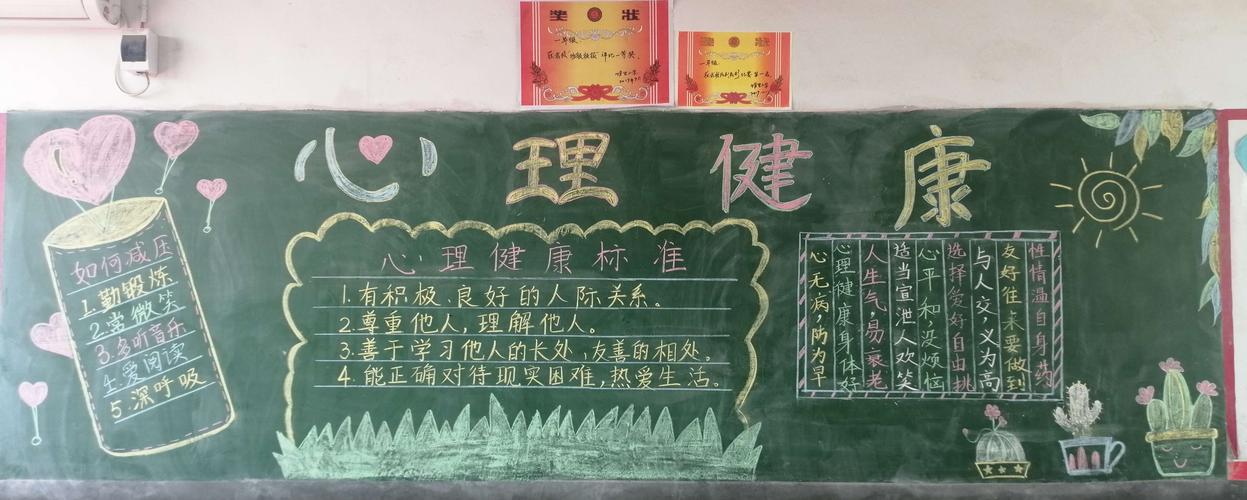 奖 状
一年级
奖 状
一年级
心理健康
如何减压
1.勤锻炼
2.常微笑
3.多听音乐
4.爱阅读
5.深呼吸
心理健康标准
1.有积极、良好的人际关系。
2.尊重他人,理解他人。
3.善于学习他人的长处,友善的相处。
4.能正确对待现实困难,热爱生活。
心无病,防为早
心理健康身体好
人生气,易衰老
适当宣泄人欢笑
心平和,没烦恼
选择爱好自由挑
与人交,义为高
友好往来要做到
性情温自身药